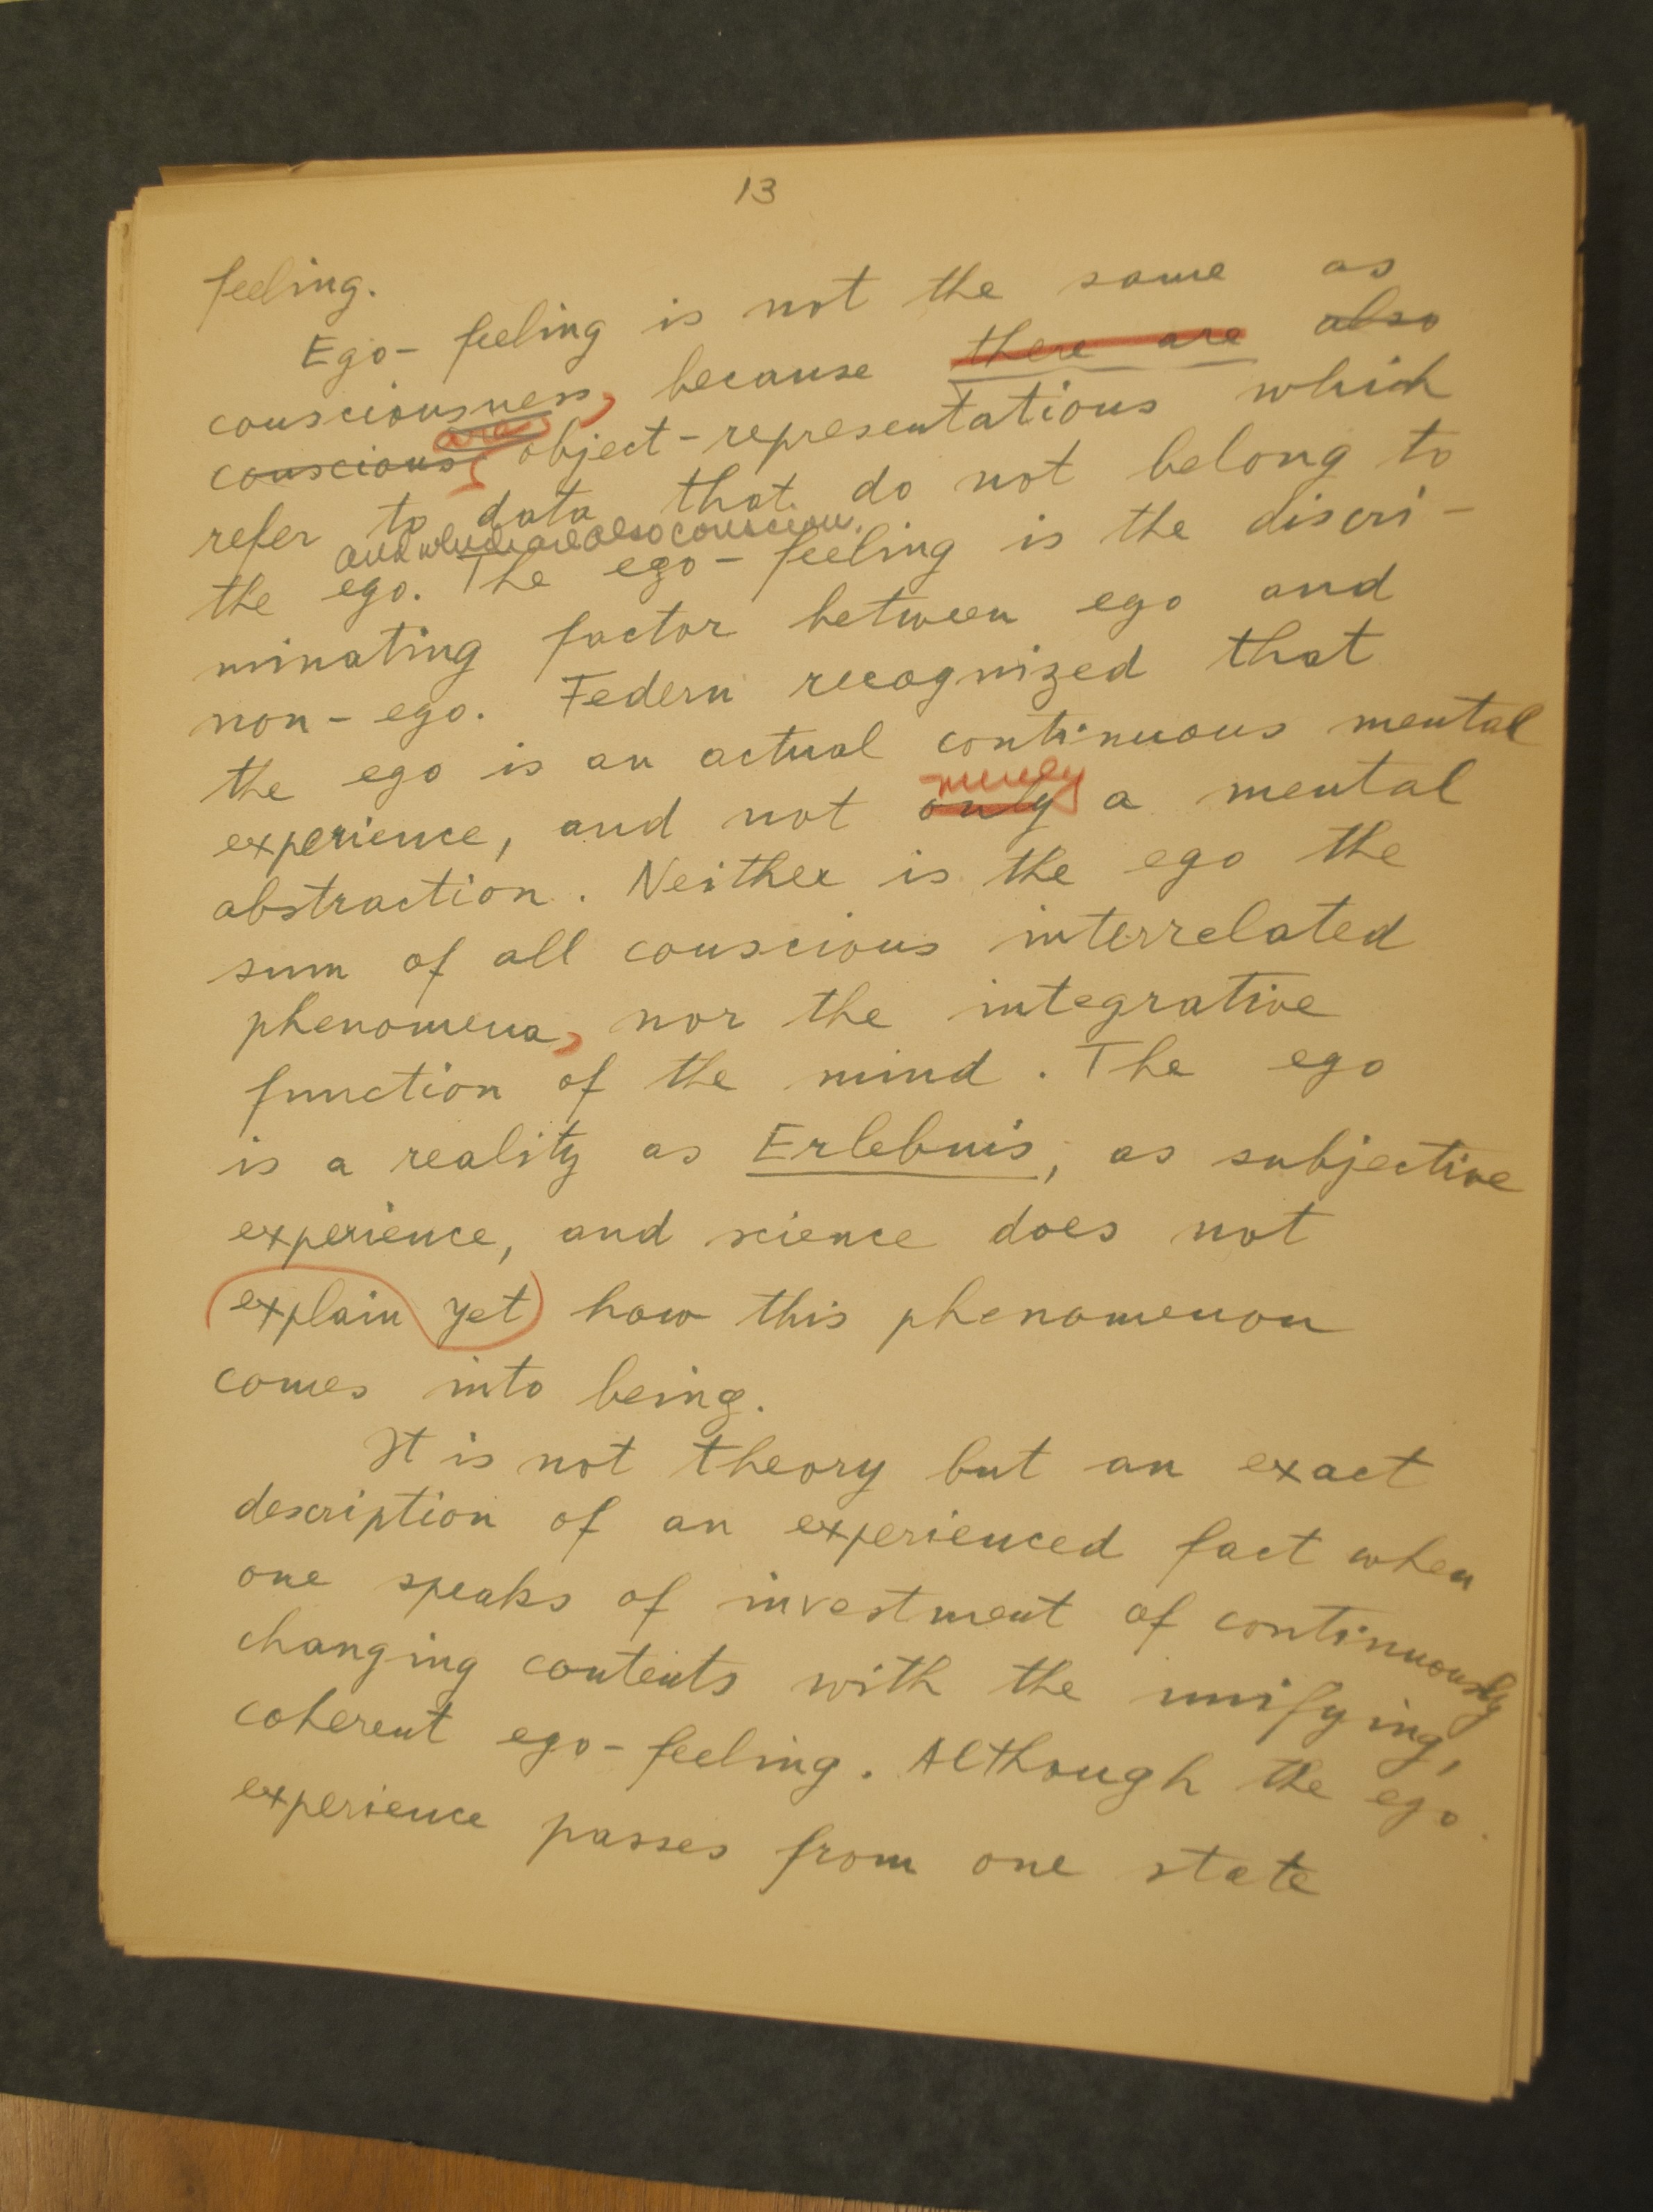 13
feeling.
Ego- feeling is not the same as
consciousness, because there are also
are
conscious, object-representations which
refer to data that do not belong to
and which are also conscious.
the ego. The ego-feeling is the discri-
minating factor between ego and
non-ego. Federn recognized that
the ego is an actual continuous mental
merely
experience, and not only a mental
abstraction. Neither is the ego the
sum of all conscious interrelated
phenomena, nor the integrative
function of the mind. The ego
is a reality as Erlebnis, as subjective
experience, and science does not
explain yet how this phenomenon
comes into being.
It is not theory but an exact
description of an experienced fact when
one speaks of investment of continuously
changing contents with the unifying,
coherent ego-feeling. Although the ego
experience passes from one state